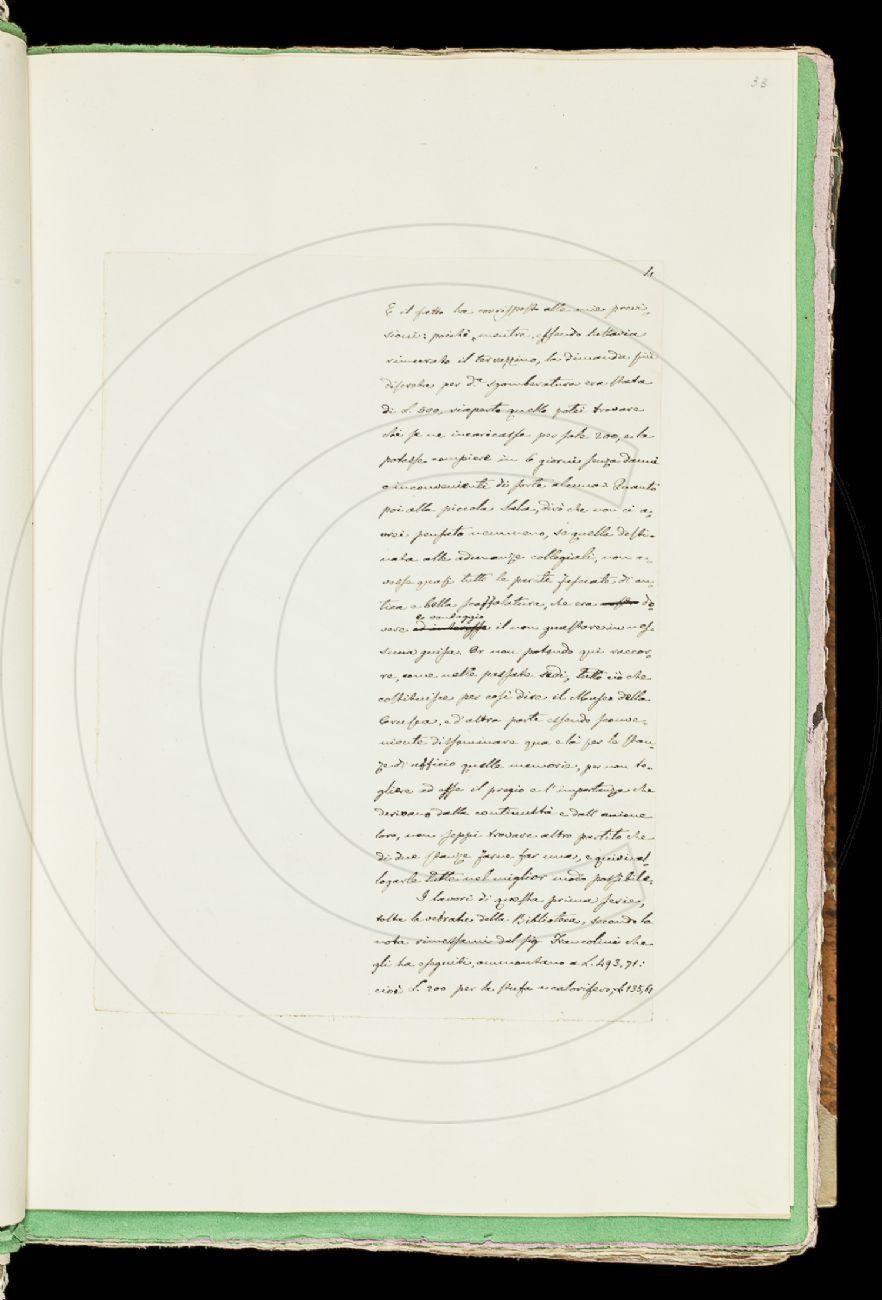 33
4
E il fatto ha corrisposto alle mie previ-
sioni: poichè, mentre, essendo tuttavia
rimurato il terrazzino, la dimanda più
discreta per d.ª sgomberatura era stata
di L. 500, riaperto quello potei trovare
chi se ne incaricasse per sole 200, e la
potesse compiere in 6 giorni senza danni
o inconvenienti di sorta alcuna. Quanto
poi alla piccola Sala, dirò che non ci a-
vrei pensato nemmeno, se quella desti-
nata alle adunanze collegiali, non a-
vesse quasi tutte le pareti fasciate di an-
tica e bella scaffalatura, che era nostro do
e vantaggio
vere ed interesse il non guastare in nes-
suna guisa. Or non potendo qui raccor-
re, come nelle passate sedi, tutto ciò che
costituisce per così dire il Museo della
Crusca, e d'altra parte essendo sconve-
niente disseminare qua e là per le stan-
ze di ufficio quelle memorie, per non to-
gliere ad esse il pregio e l'importanza che
derivano dalla continuità e dall'unione
loro, non seppi trovare altro partito che
di due stanze farne far una, e quivi al-
logarle tutte nel miglior modo possibile.
I lavori di questa prima serie,
tolte le vetrate della Biblioteca, secondo la
nota rimessami dal sig. Francolini che
gli ha eseguiti, ammontano a L. 493,71:
cioè L. 200 per la stufa e calorifero; L. 135,61